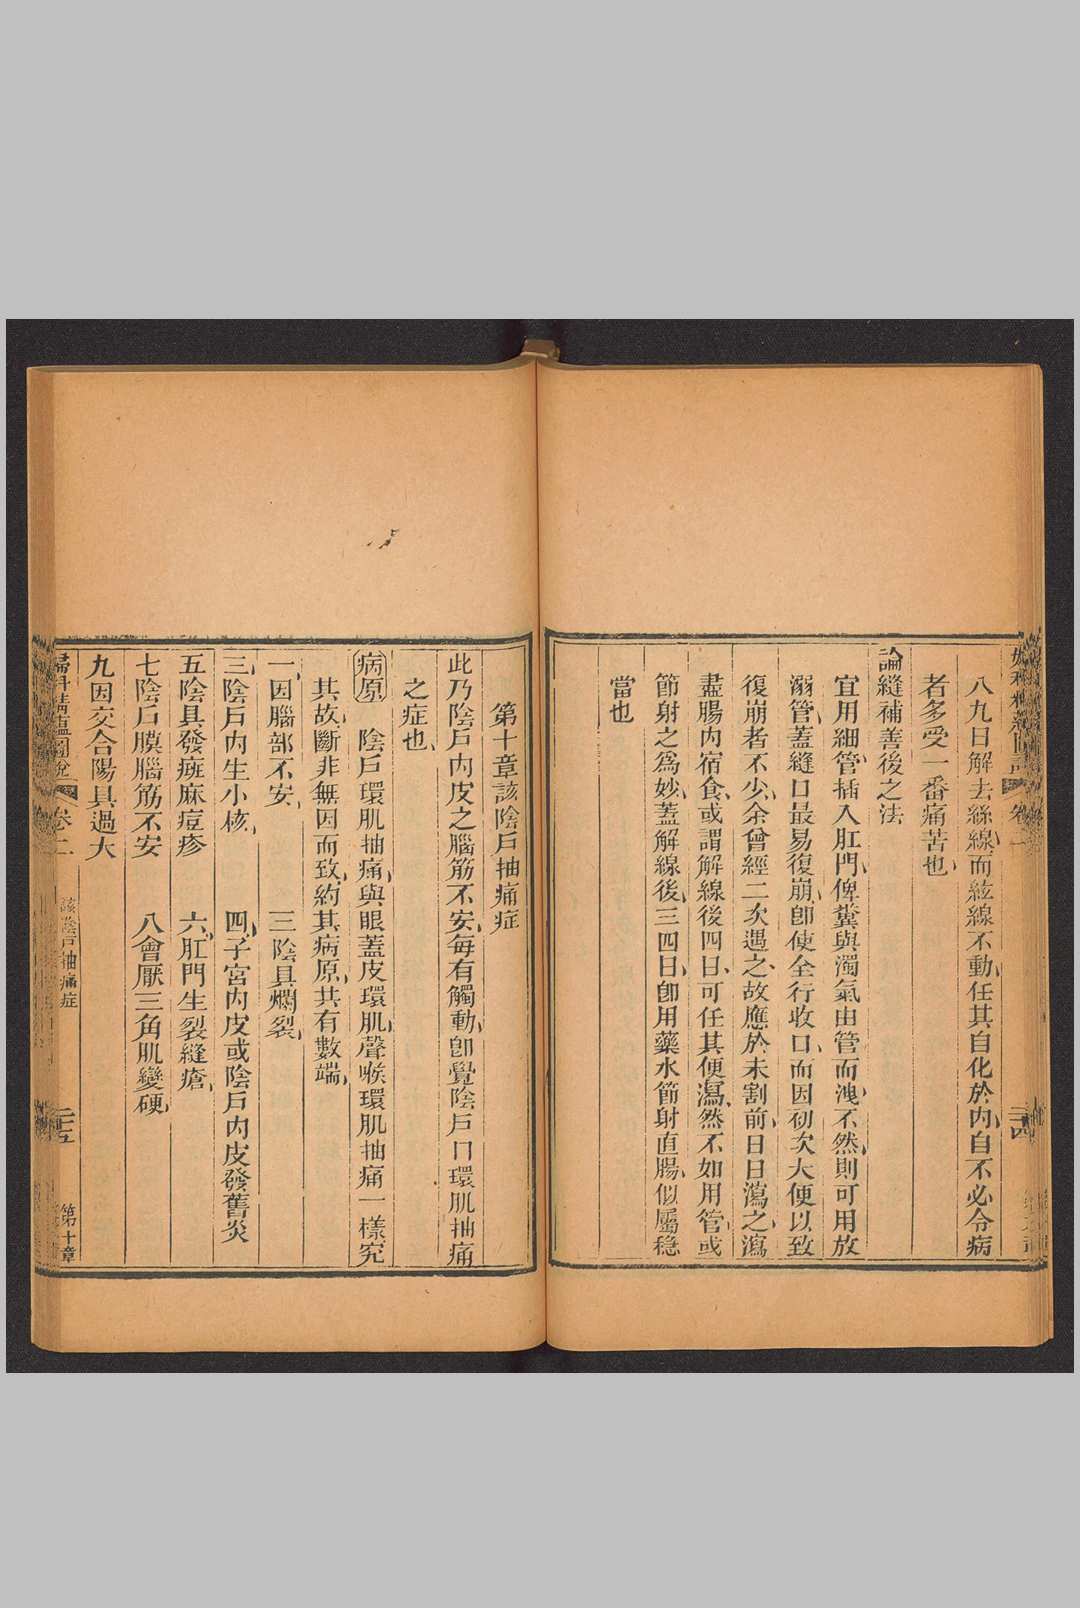 八九日解去絲線而絃線不動任其自化於內自不必令病
者多受一番痛苦也
論縫補善後之法
宜用細管插入肛門俾糞與濁氣由管而洩不然則可用放
溺管蓋縫口最易復崩卽使全行收口而因初次大便以致
復崩者不少余曾經二次遇之故應於未割前日日瀉之瀉
盡腸內宿食或謂解線後四日可任其便瀉然不如用管或
節射之爲妙蓋解線後三四日卽用藥水節射直腸似屬穩
當也
第十章該陰戶抽痛症
此乃陰戶內皮之腦筋不安每有觸動卽覺陰戶口環肌抽痛
之症也
病原 陰戶環肌抽痛與眼蓋皮環肌聲喉環肌抽痛一樣究
其故斷非無因而致約其病原共有數端
一因腦部不安 二陰具爛裂
三陰戶內生小核 四子宮內皮或陰戶內皮發舊炎
五陰具發痲麻痘疹 六肛門生裂縫瘡
七陰戶膜腦筋不安 八會厭三角肌變硬
九因交合陽具過大
婦科精蘊圖說 卷二 該陰戶抽痛症 二十五 第十章